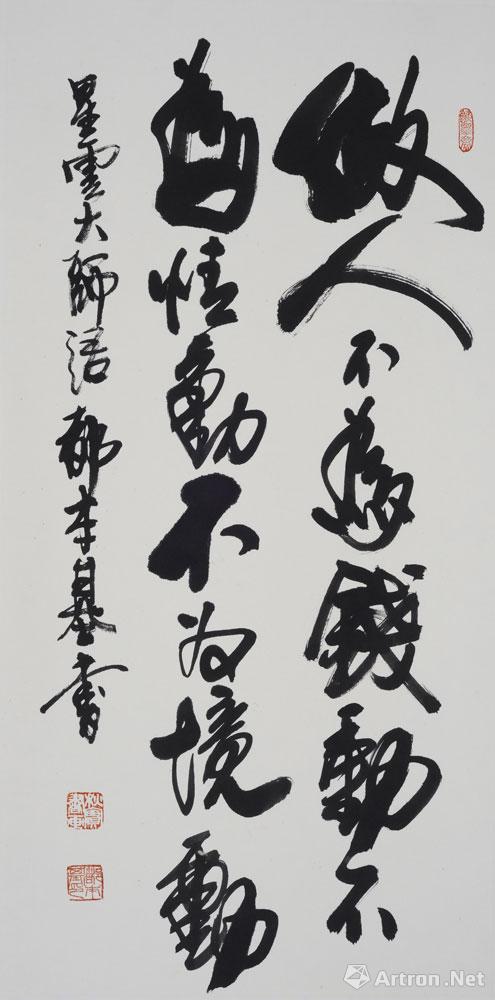 做人不為錢動不
為情動不为境動
星雲大師語 都本基書
Artron.Net